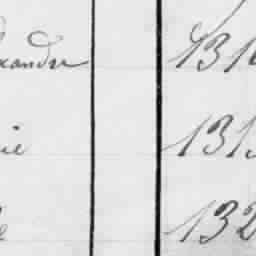 xandre 131
ie 131
e 132